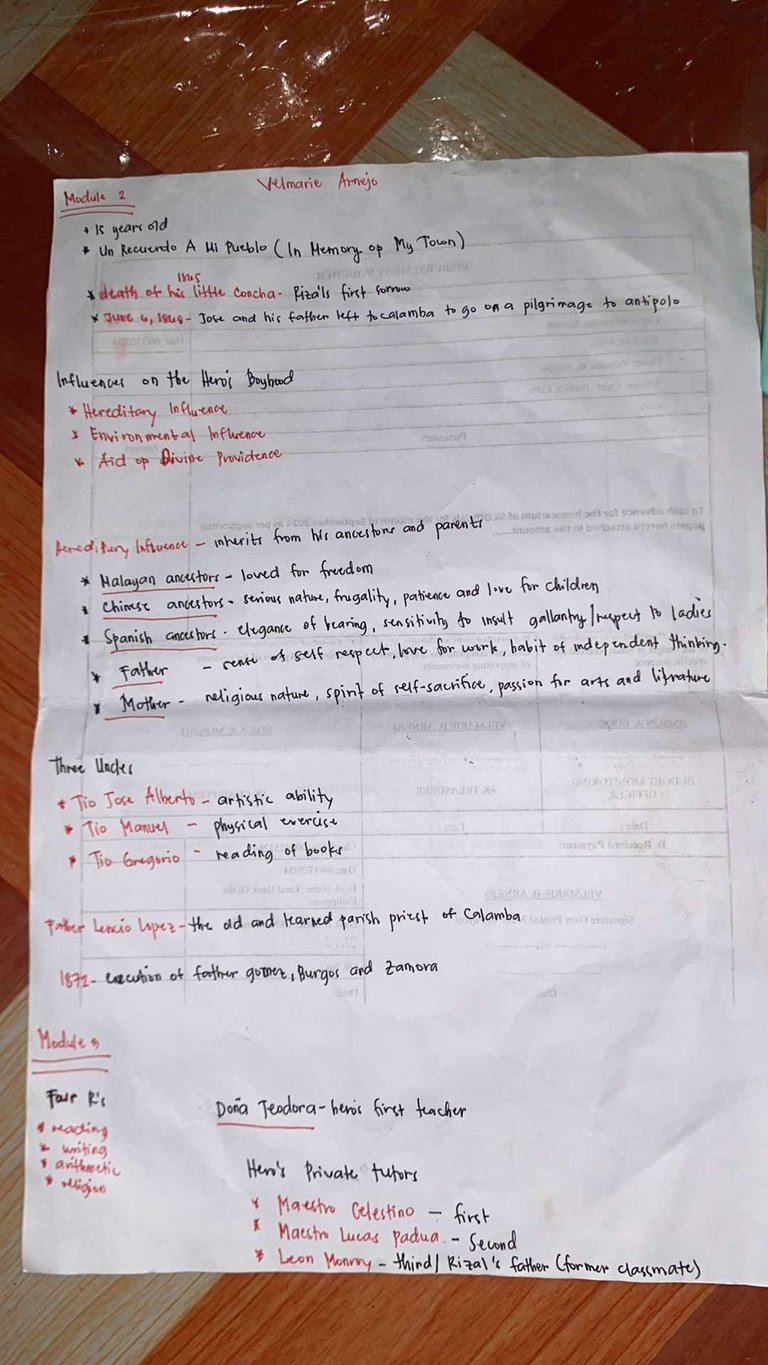 Module 2
Velmarie Arnejo
* 15 years old
* Un Recuerdo A Mi Pueblo (In Memory op My Town)
1865
* death of his little Concha - Rizal's first sorrow
* June 6, 1868 - Jose and his father left to calamba to go on a pilgrimage to antipolo
Influences on the Hero's Boyhood
* Hereditary Influence
* Environmental Influence
* Aid op Divine Providence
Hereditary Influence - inherits from his ancestors and parents
* Malayan ancestors - loved for freedom
* Chinese ancestors - serious nature, frugality, patience and love for children
* Spanish ancestors - elegance of bearing, sensitivity to insult gallantry/respect to ladies
* Father - sense of self respect, love for work, habit of independent thinking.
* Mother - religious nature, spirit of self-sacrifice, passion for arts and literature
Three Uncles
* Tio Jose Alberto - artistic ability
* Tio Manuel - physical exercise
* Tio Gregorio - reading of books
Father Lencio Lopez - the old and learned parish priest of Calamba
1872 - execution of father gomez, Burgos and Zamora
Module 3
Four R's
* reading
* writing
* arithmetic
* religion
Doña Teodora - hero's first teacher
Hero's Private tutors
* Maestro Celestino - first
* Maestro Lucas Padua - Second
* Leon Monroy - third/ Rizal's father (former classmate)